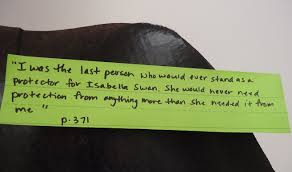 "I was the last person who would ever stand as a
protector for Isabella Swan. She would never need
protection from anything more than she needed it from
me"
p. 371